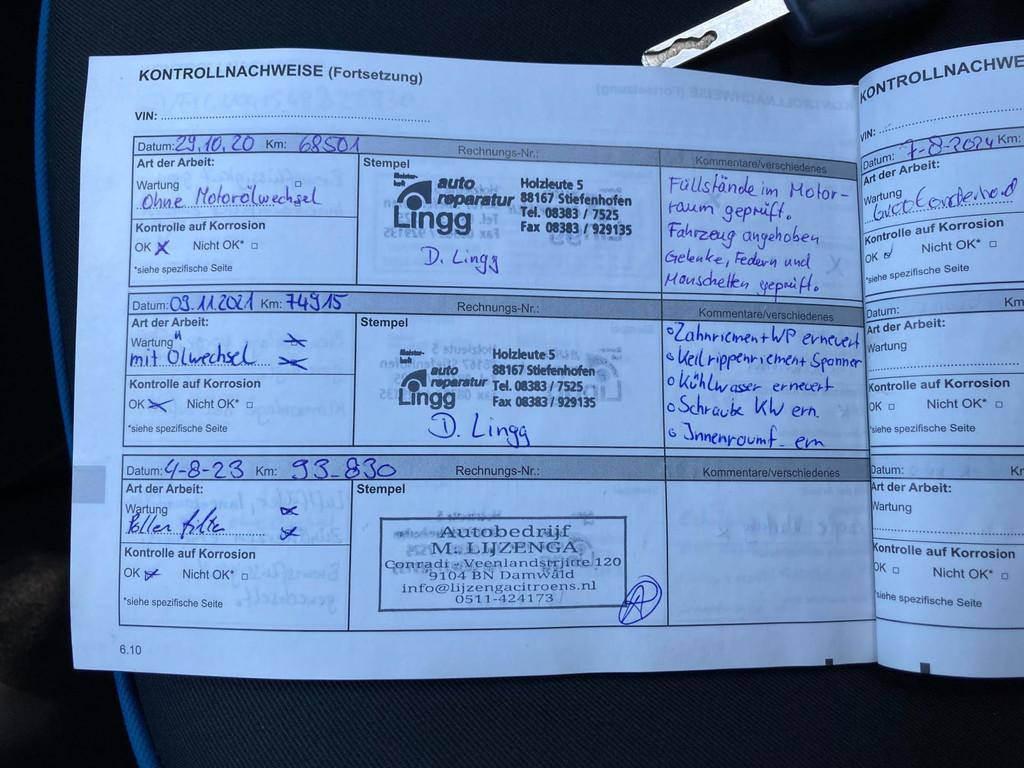 KONTROLLNACHWEISE (Fortsetzung)
VIN:
Datum: 29.10.20 Km: 68501 Rechnungs-Nr.: Kommentare/verschiedenes
Art der Arbeit:
Wartung
Ohne Motorölwechsel
Kontrolle auf Korrosion
OK Nicht OK*
*siehe spezifische Seite
Stempel
Meister-
haft
auto
reparatur
Lingg
Holzleute 5
88167 Stiefenhofen
Tel. 08383 / 7525
Fax 08383 / 929135
D. Lingg
Füllstände im Motor-
raum geprüft.
Fahrzeug angehoben
Gelenke, Federn und
Manschetten geprüft.
Datum: 09.11.2021 Km: 74915 Rechnungs-Nr.: Kommentare/verschiedenes
Art der Arbeit:
Wartung
mit Ölwechsel
Kontrolle auf Korrosion
OK Nicht OK*
*siehe spezifische Seite
Stempel
Meister-
haft
auto
reparatur
Lingg
Holzleute 5
88167 Stiefenhofen
Tel. 08383 / 7525
Fax 08383 / 929135
D. Lingg
Zahnriemen + WP erneuert
Keilrippenriemen + Spanner
Kühlwasser erneuert
Schraube KW ern.
Innenraumf. ern
Datum: 4-8-23 Km: 93-830 Rechnungs-Nr.: Kommentare/verschiedenes
Art der Arbeit:
Wartung
Pollen filter
Kontrolle auf Korrosion
OK Nicht OK*
*siehe spezifische Seite
Stempel
Autobedrijf
M. LIJZENGA
Conradi - Veenlandstrjitte 120
9104 BN Damwâld
info@lijzengacitroens.nl
0511-424173
6.10
KONTROLLNACHWE
VIN:
Datum: 7-8-2024 Km:
Art der Arbeit:
Wartung
Kontrolle auf Korrosion
OK Nicht OK*
*siehe spezifische Seite
Datum: Km
Art der Arbeit:
Wartung
Kontrolle auf Korrosion
OK Nicht OK*
*siehe spezifische Seite
Datum: Kr
Art der Arbeit:
Wartung
Kontrolle auf Korrosion
OK Nicht OK*
*siehe spezifische Seite